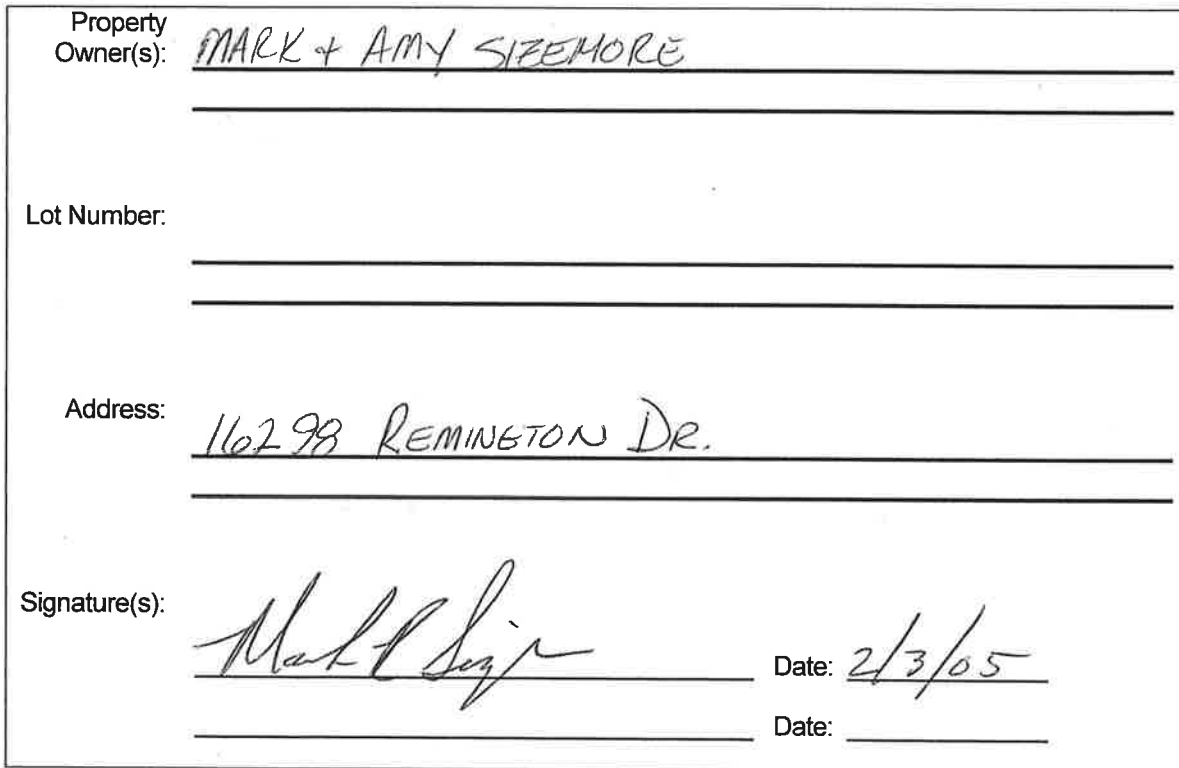 Property
Owner(s): MARK + AMY SIZEMORE
Lot Number:
Address: 16298 REMINGTON DR.
Signature(s): Mark R Date: 2/3/05
Date: